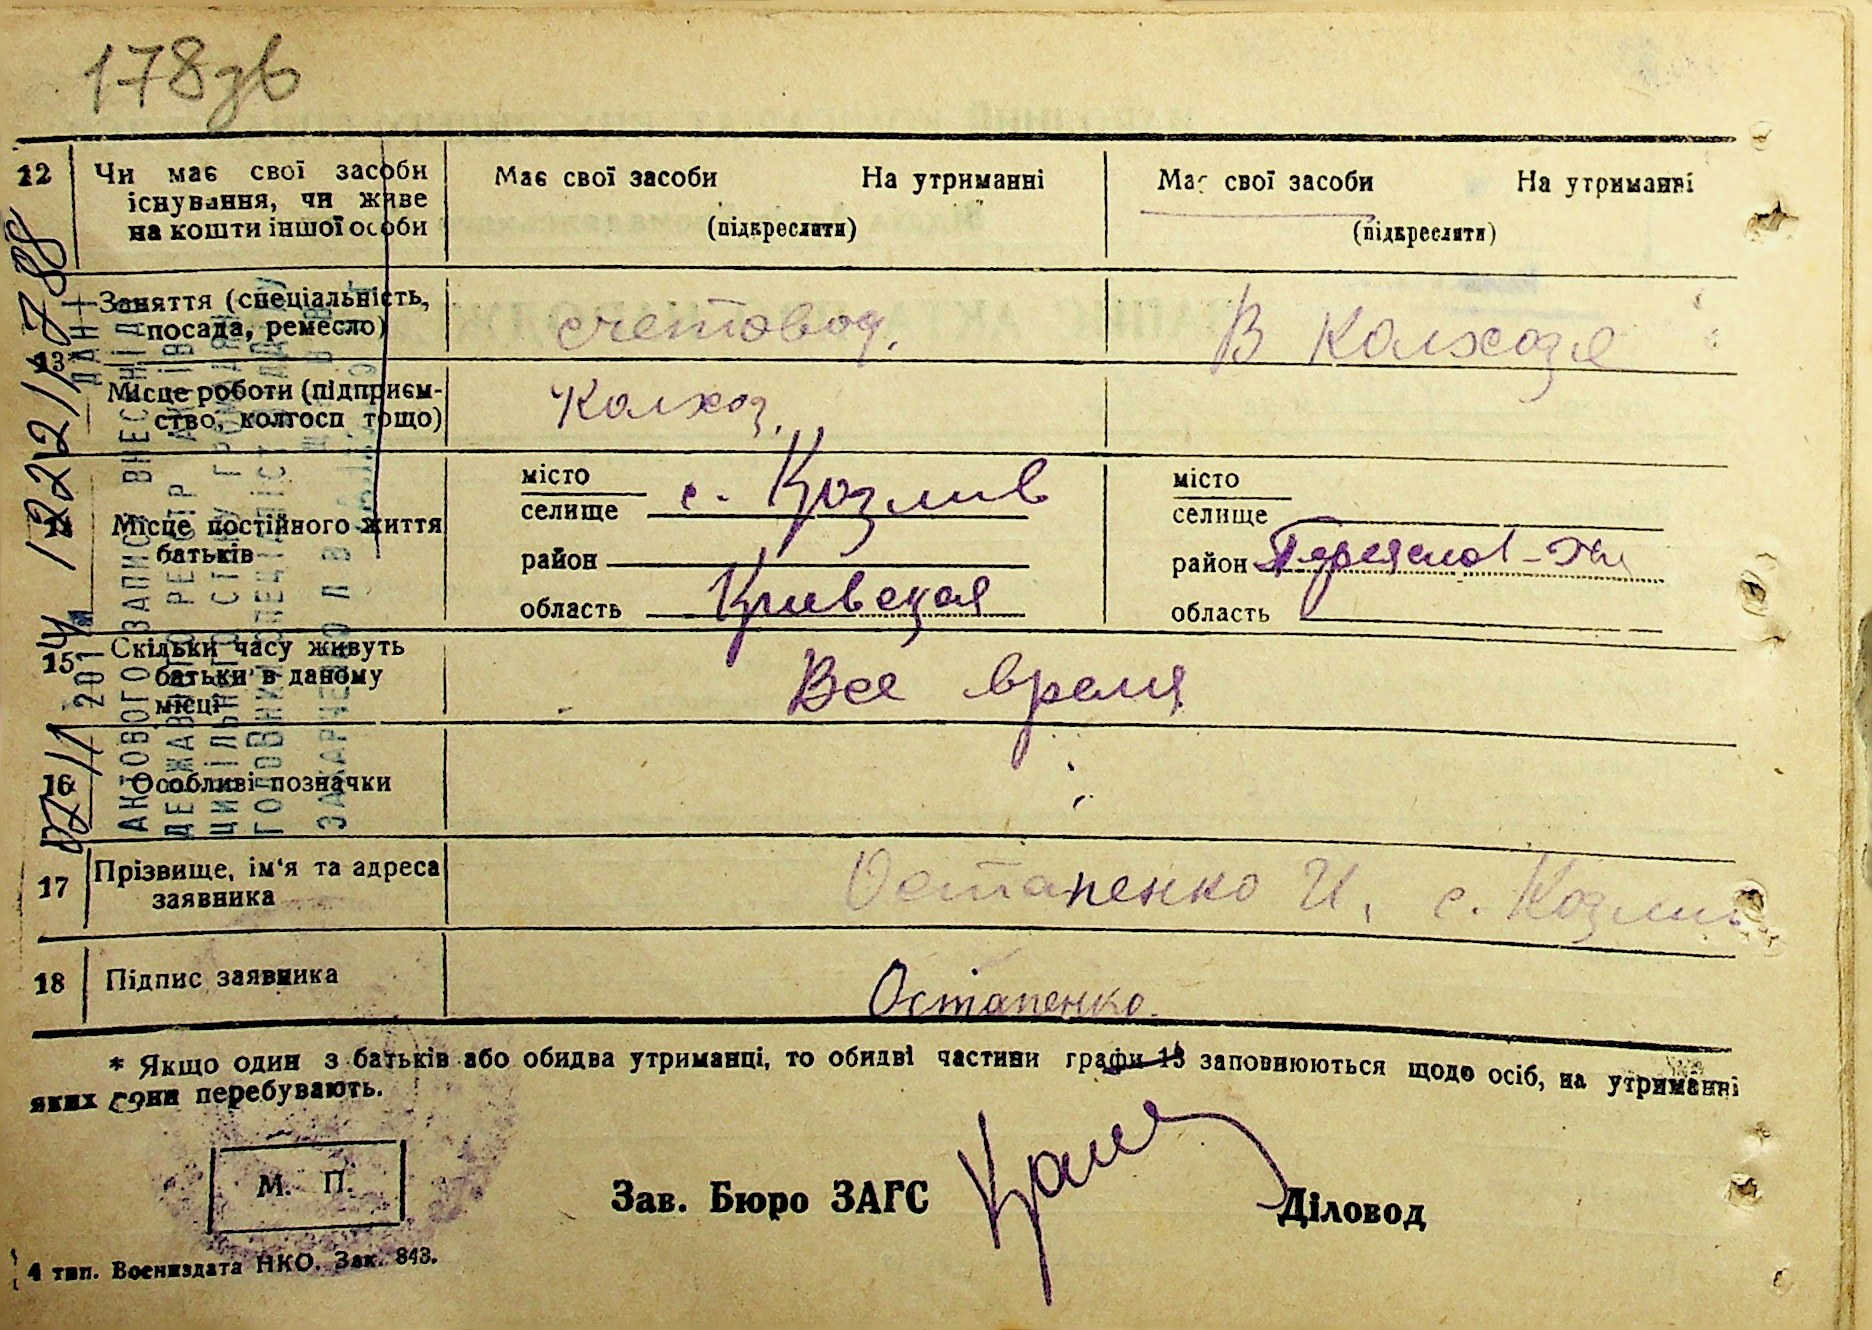 178зв
12 Чи має свої засоби Має свої засоби На утриманні Має свої засоби На утриманні
існування, чи живе
на кошти іншої особи (підкреслити) (підкреслити)
13* Заняття (спеціальність, счетовод. В Колхозе
посада, ремесло)
Місце роботи (підприєм- Колхоз.
ство, колгосп тощо)
14 Місце постійного життя
батьків
місто
селище с. Козлив
район
область Киевская
місто
селище
район
область
15 Скільки часу живуть Все время
батьки в даному
місці
16 Особливі позначки
17 Прізвище, ім'я та адреса Остапенко И. с. Козлив
заявника
18 Підпис заявника Остапенко.
* Якщо один з батьків або обидва утриманці, то обидві частини графи 13 заповнюються щодо осіб, на утриманні
яких вони перебувають.
М. П.
Зав. Бюро ЗАГС Діловод
4 тип. Воениздата НКО. Зак. 843.
АКТОВОГО ЗАПИСУ ВНЕСЕНІ ДО
ДЕРЖАВНОГО РЕЄСТР
ЦИВІЛЬНОГО СТАНУ ГРОМАДЯН
ГОЛОВНИЙ СПЕЦІАЛІСТ